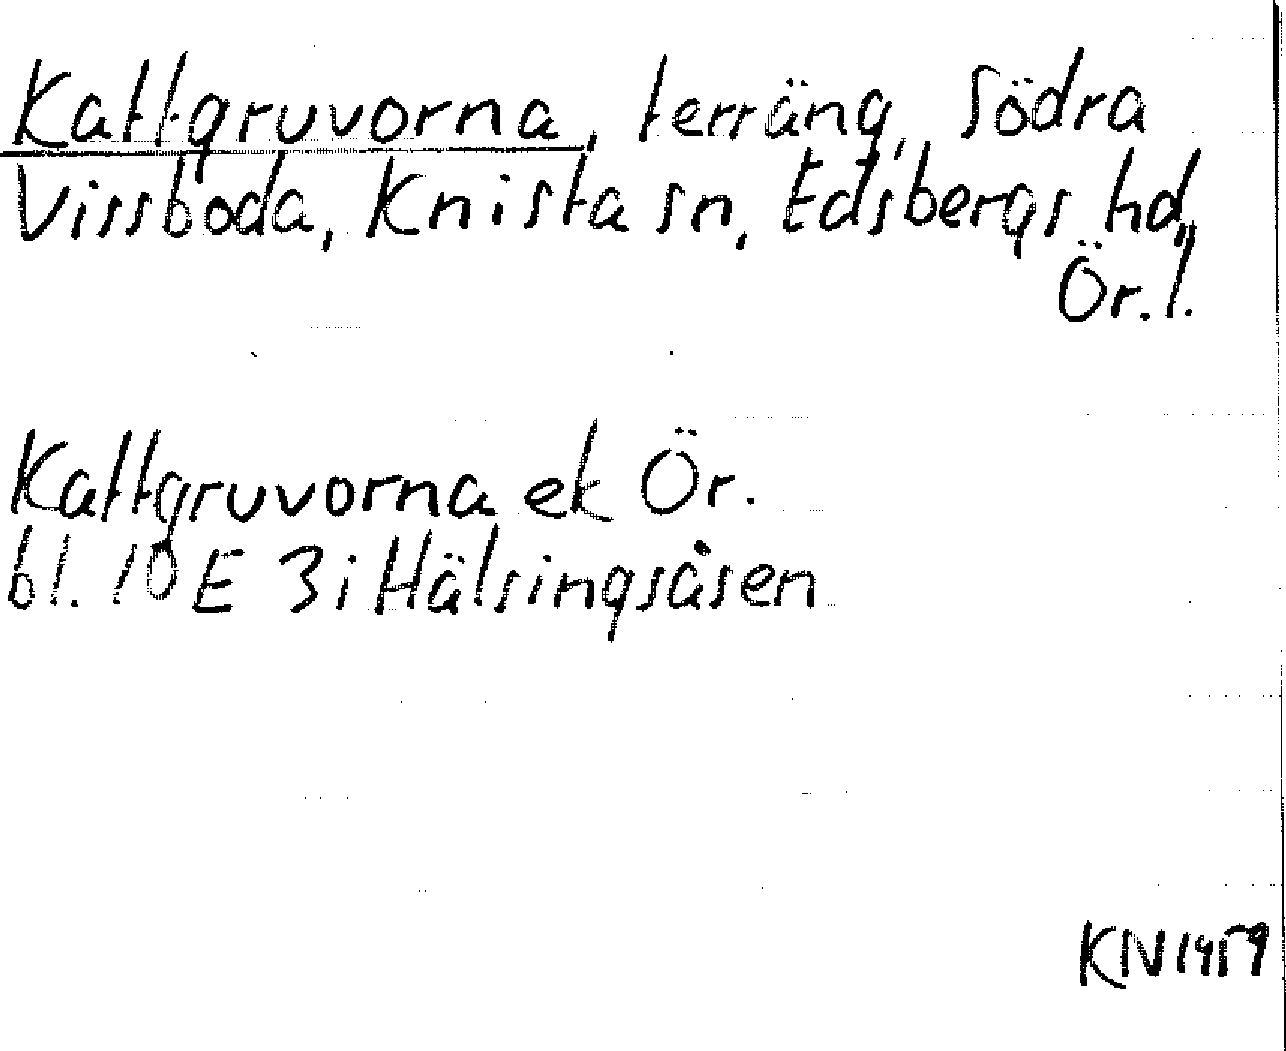 Kattgruvorna, terräng, Södra
Vissboda, Knista sn, Edsbergs hd,
Ör. l.
Kattgruvorna ek Ör.
bl. 10 E 3i Hälsingsåsen
KN 1959